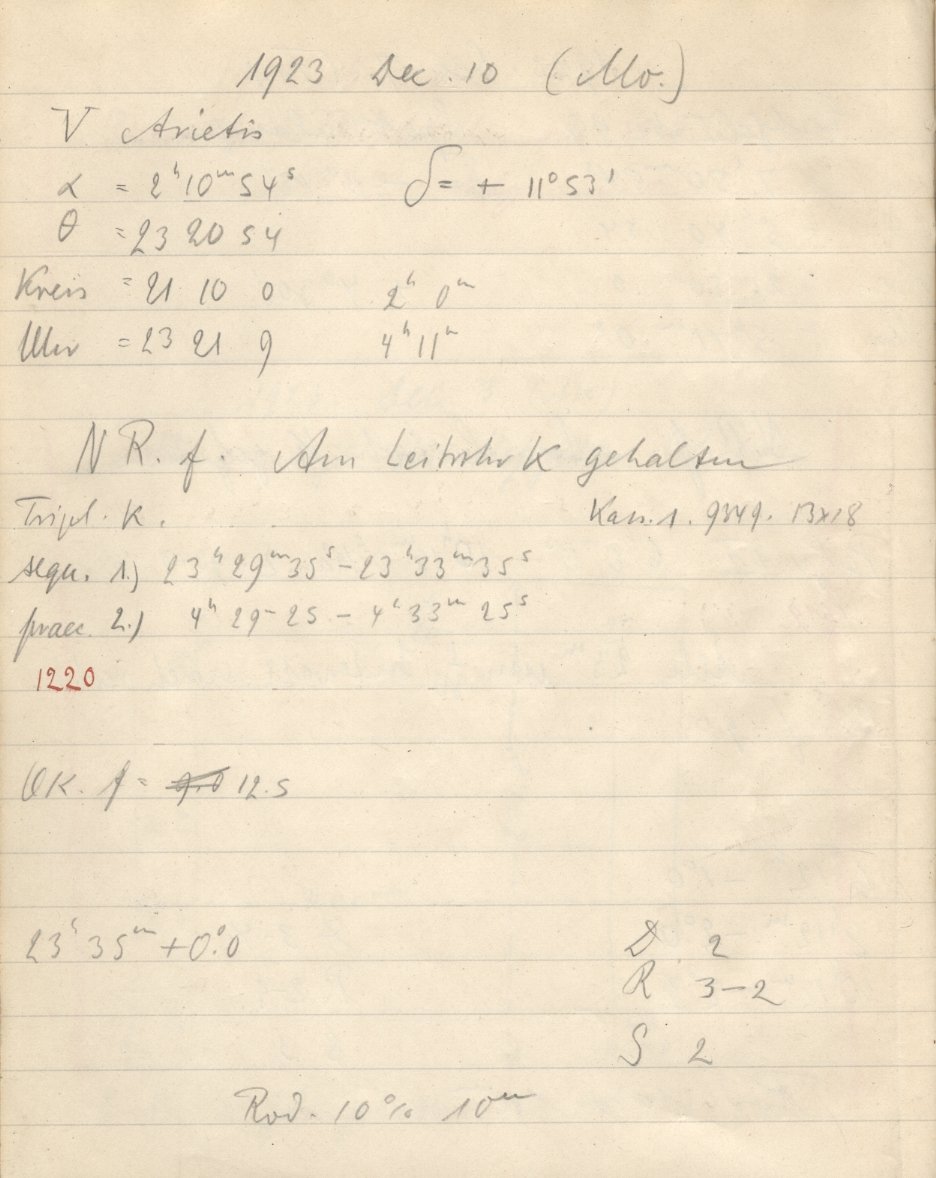 1923 Dec. 10 (Mo.)
V Arietis
α = 2ʰ10ᵐ54ˢ δ = + 11°53'
θ = 23 20 54
Kreis = 21 10 0 2ʰ 0ᵐ
Uhr = 23 21 9 4ʰ11ᵐ
N R. f. Am Leitrohr K gehalten
Tripl. K. Kass. 1. 9349. 13x18
sequ. 1.) 23ʰ29ᵐ35ˢ – 23ʰ33ᵐ35ˢ
praec. 2.) 4ʰ 29 – 25 – 4ʰ 33ᵐ 25ˢ
1220
OK. f = 12.5
23ʰ 35ᵐ +0.°0 D. 2
R 3–2
S 2
Rod. 10% 10ᵐ